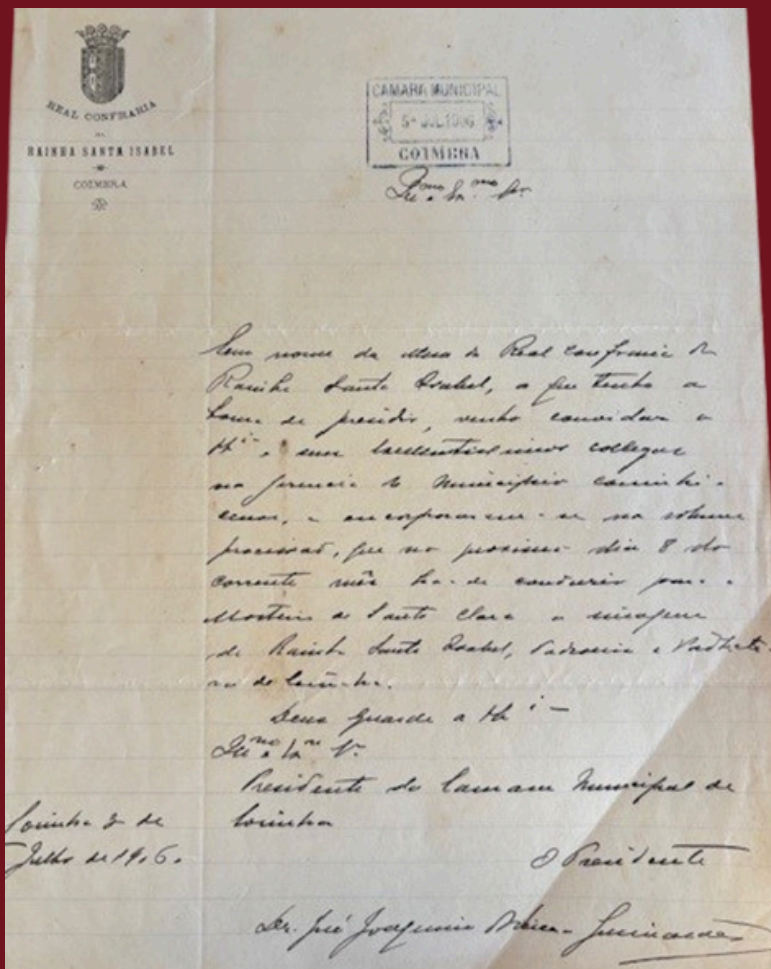 REAL CONFRARIA
DA
RAINHA SANTA ISABEL
COIMBRA
CAMARA MUNICIPAL
5 JUL. 1906
COIMBRA
Ill.mo e Ex.mo Snr.
Em nome da Mesa da Real Confraria da
Rainha Santa Isabel, a que tenho a
honra de presidir, venho convidar a
e seus collegas
na gerencia do Municipio conimbri-
cense, a encorporarem-se na solemne
procissão, que no proximo dia 8 do
corrente mês ha-de conduzir para o
Mosteiro de Santa Clara a imagem
da Rainha Santa Isabel, Padroeira e
de Coimbra.
Deus guarde a
Ill.mo e Ex.mo Sr.
Presidente da Camara Municipal de
Coimbra
Coimbra 3 de
Julho de 1906.
O Presidente
Dr. José Joaquim Guimarães